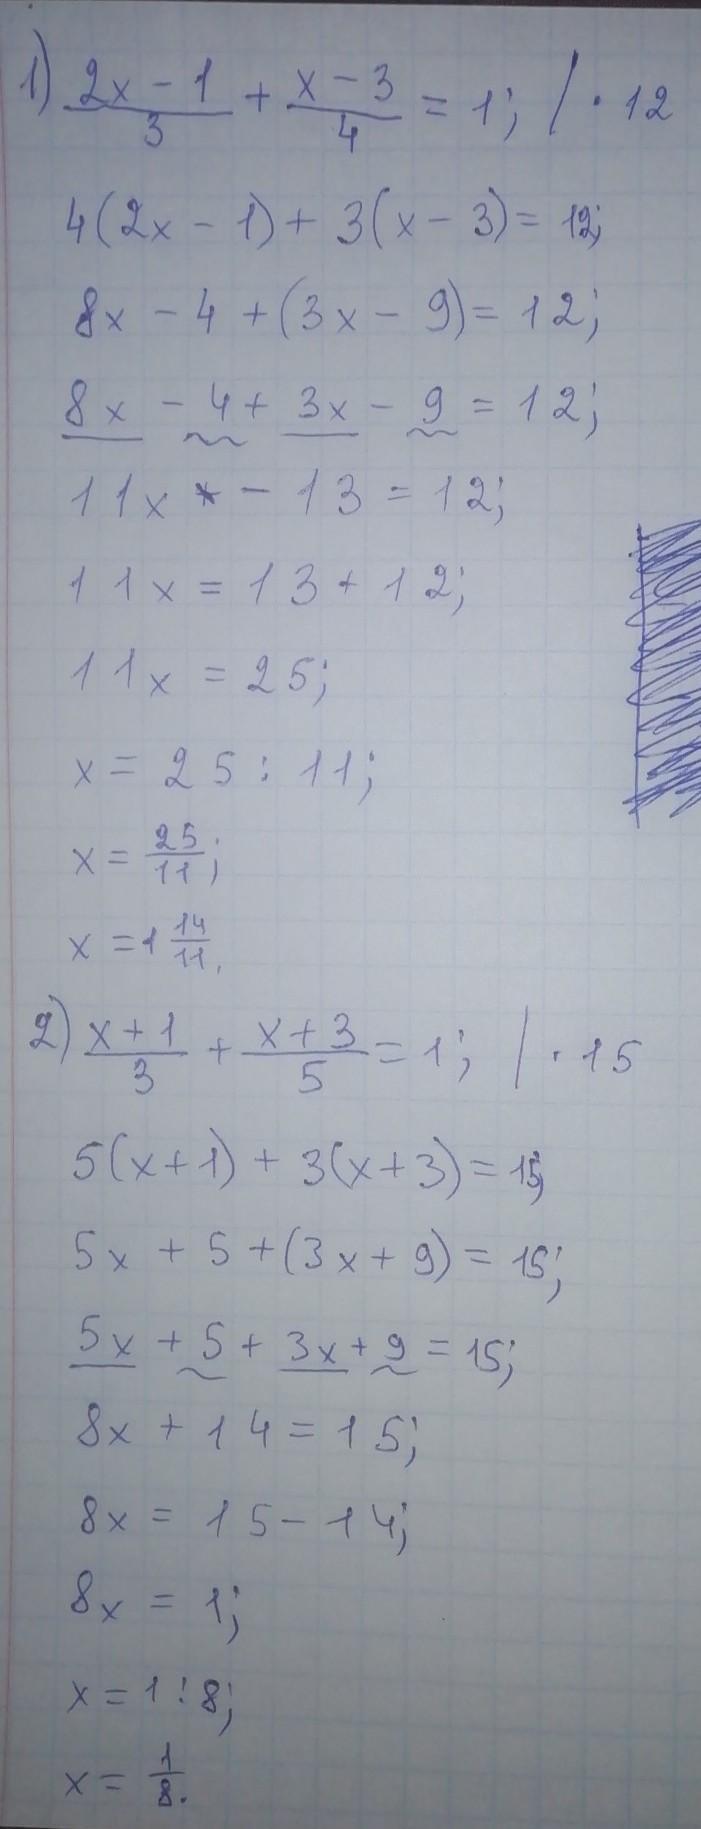 1) (2x - 1)/3 + (x - 3)/4 = 1; / · 12
4(2x - 1) + 3(x - 3) = 12;
8x - 4 + (3x - 9) = 12;
8x - 4 + 3x - 9 = 12;
11x - 13 = 12;
11x = 13 + 12;
11x = 25;
x = 25 : 11;
x = 25/11;
x = 1 14/11.
2) (x + 1)/3 + (x + 3)/5 = 1; / · 15
5(x + 1) + 3(x + 3) = 15;
5x + 5 + (3x + 9) = 15;
5x + 5 + 3x + 9 = 15;
8x + 14 = 15;
8x = 15 - 14;
8x = 1;
x = 1 : 8;
x = 1/8.